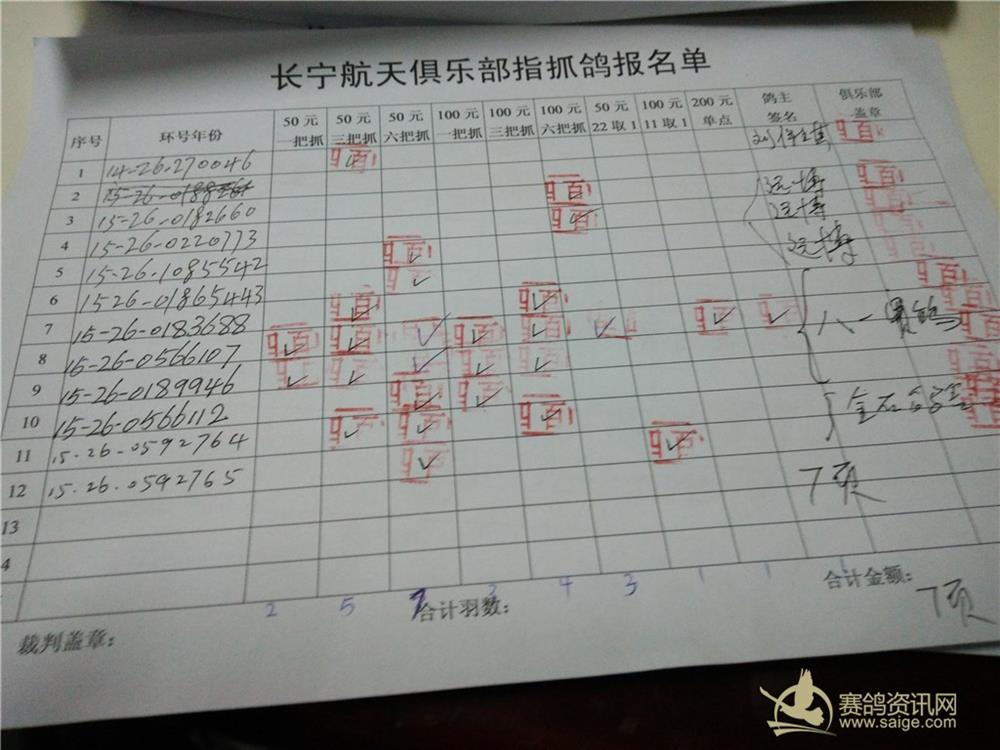 长宁航天俱乐部指抓鸽报名单
序号 环号年份 50元一把抓 50元三把抓 50元六把抓 100元一把抓 100元三把抓 100元六把抓 50元22取1 100元11取1 200元单点 鸽主签名 俱乐部盖章
1 14-26-270046
2
3 15-26-0182660 远博
4 15-26-0220773 远博
5 15-26-1085542
6 1526-01865443
7 15-26-0183688 八一赛鸽
8 15-26-0566107
9 15-26-0189946
10 15-26-0566112
11 15-26-0592764
12 15-26-0592765 7页
13
4
2 5 7 3 4 3 1 1 1
合计羽数:
合计金额:
裁判盖章: 7页
赛鸽资讯网
www.saige.com